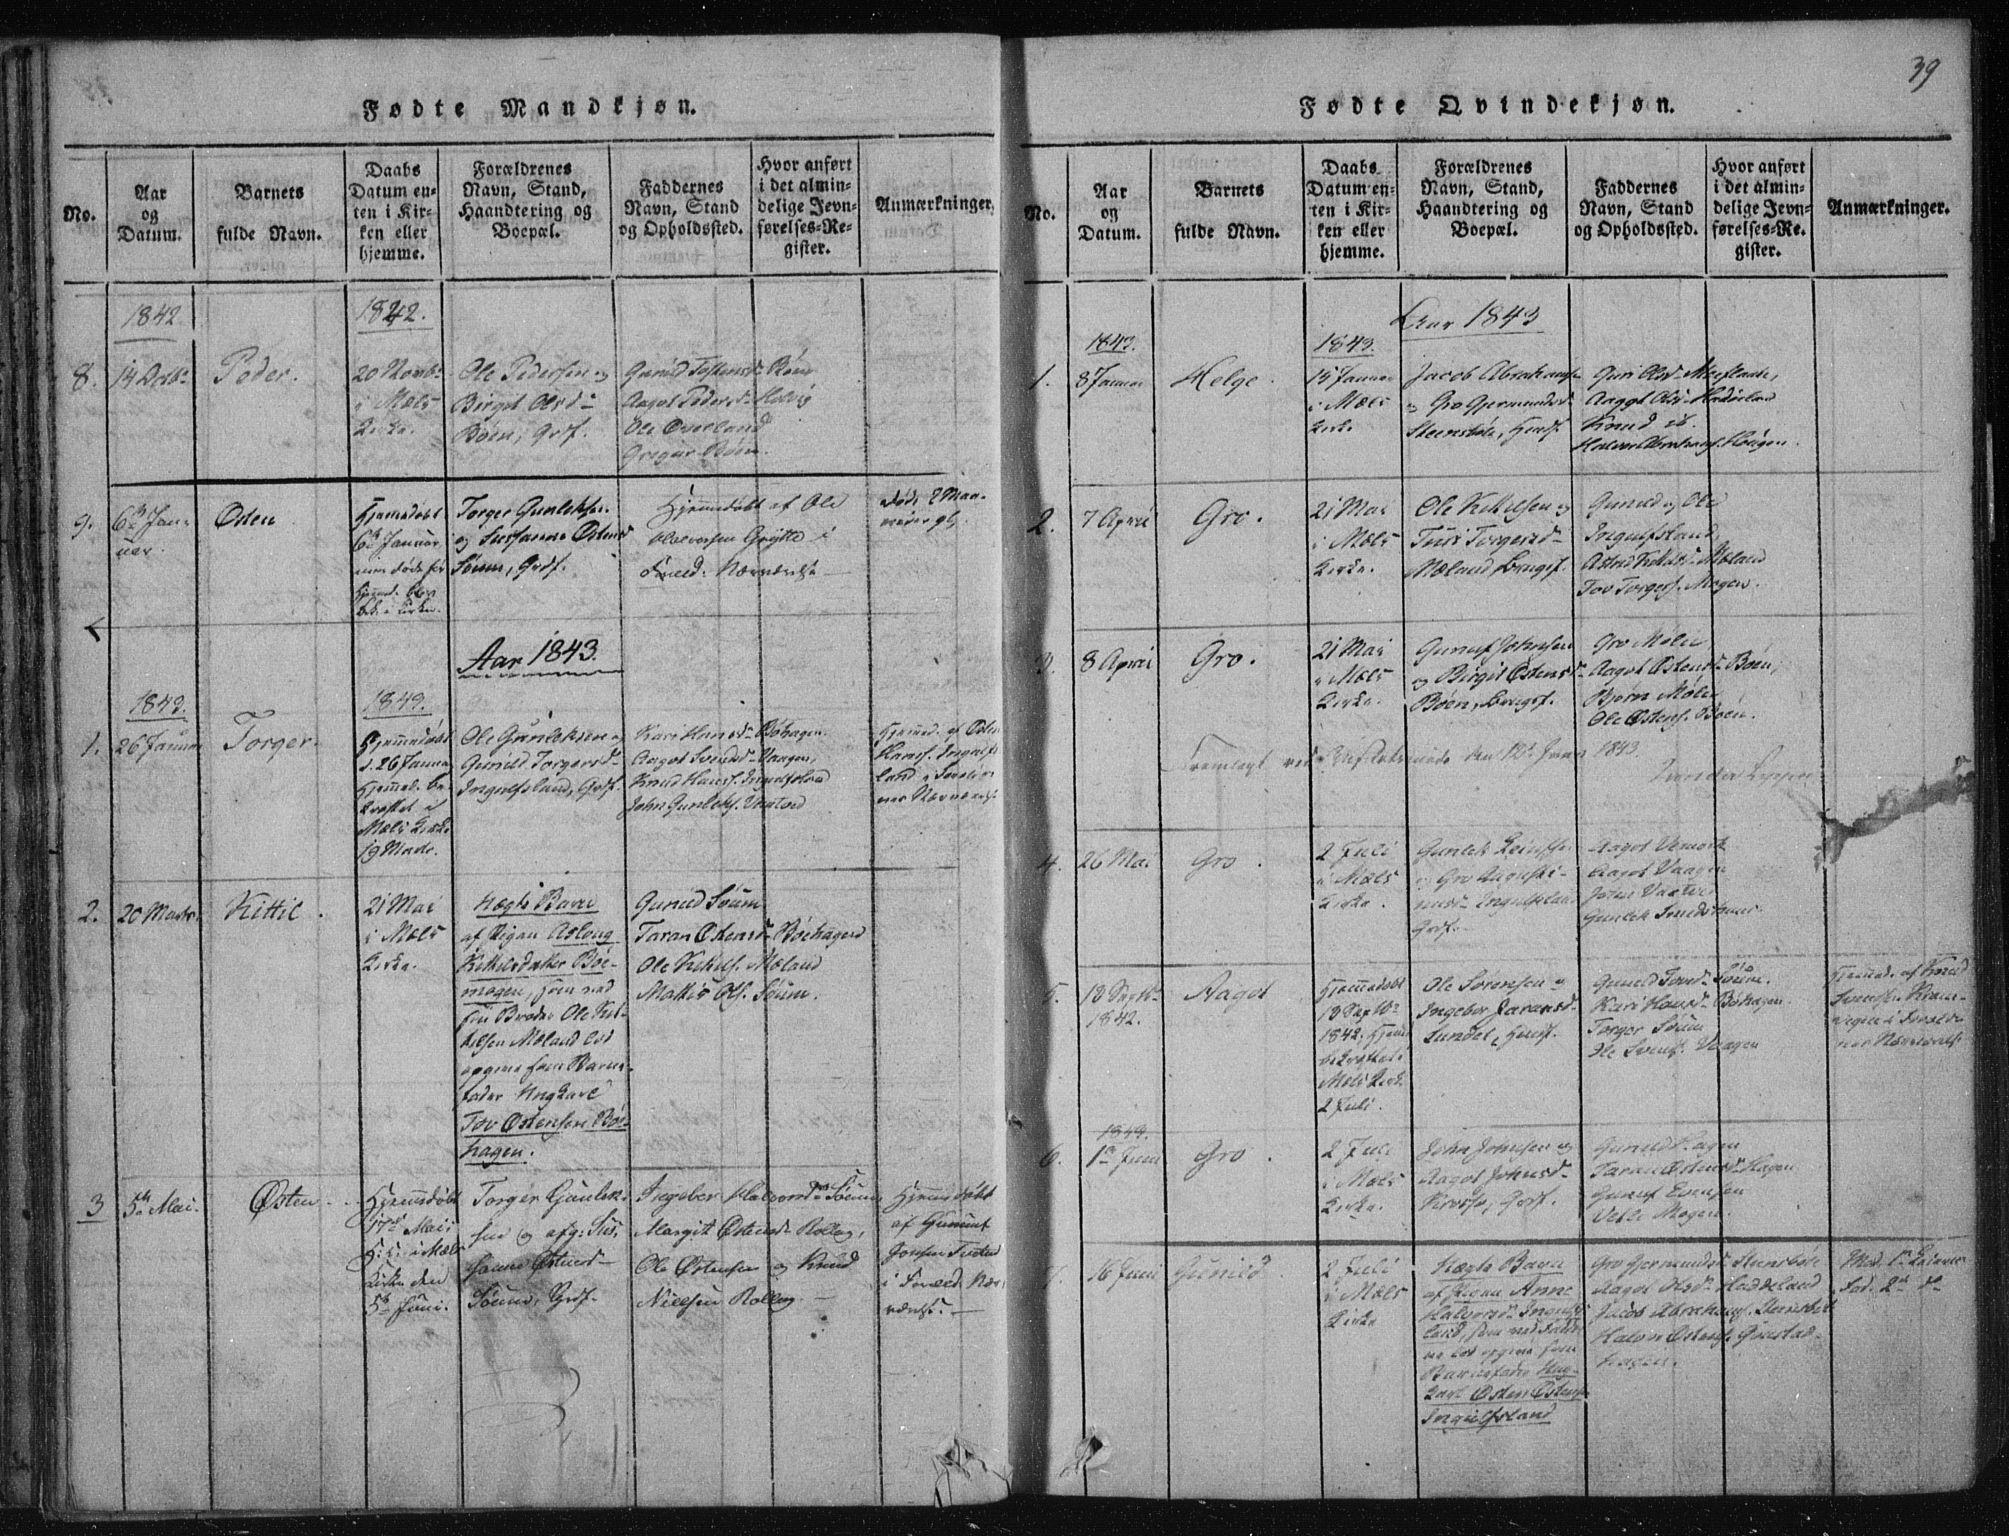 39
Fødte Mandkjøn.
No.
Aar
og
Datum.
Barnets
fulde Navn.
Daabs
Datum en-
ten i Kir-
ken eller
hjemme.
Forældrenes
Navn, Stand,
Haandtering og
Boepæl.
Faddernes
Navn, Stand
og Opholdssted.
Hvor anført
i det almin-
delige Jevn-
førelses-Re-
gister.
Anmærkninger.
1842
1842.
8.
14 Octbr
Peder.
20 Novbr
i Mæls
Kirke.
Ole Pedersen og
Birgit Olsdr
Bøen, Grdf.
Gunild Tostensdr Bøen
Aagot Pedersdr
Ole Overland
Gregar Bøen.
9.
6te Jan-
uar.
Østen
Hjemmedøbt
6te Januar
Torger Gunleksen
og Sussanne Østensd
Søum, Grdf.
Hjemmedøbt af Ole
Halvorsen Grytte i
Foræld: Nærværelse
Aar 1843.
1843.
1843.
1.
26 Januar
Torger.
Hjemmedøbt
d. 26 Januar
Hjemmed. be-
kræftet i
Mæls Kirke
19 Marts.
Ole Gunleksen og
Gunild Torgersdr
Ingulfsland, Grdf.
Kari Hansdr Bøhagen
Aagot Svendsdr Vaagen,
Knud Hansf. Ingulfsland
John Gunleksf.
Hjemmed. af Østen
Hansf. Ingulfs-
land i Foreldre-
nes Nærværelse
2.
20 Marts.
Kittil.
21 Mai
i Mæls
Kirke.
Uægte Barn
af Pigen Aslaug
Kittilsdatter Bøe-
mogen, som ved
sin Broder Ole Kit-
tilsen Mæland lod
opgive som Barne-
fader Ungkarl
Tov Østensen Bøe-
hagen.
Gunild Søum
Taran Østensdr Bøehagen
Ole Kittilsf. Mæland
Mattis Olsf. Søum.
3
5te Mai.
Østen
Hjemmedøbt
17de Mai;
Kirke den
5te Juni.
Torger Gunlek-
sen og afg: Sus-
sanne Østensd-
Søum, Grdf.
Ingebor Halvorsdr Søum
Margit Østensdr Rollag,
Ole Østensen og Knud
Nielsen Rollag.
Hjemmedøbt
af Gunnuf
i Foræld. Nær-
værelse.
Fødte Qvindekjøn.
No.
Aar
og
Datum.
Barnets
fulde Navn.
Daabs
Datum en-
ten i Kir-
ken eller
hjemme.
Forældrenes
Navn, Stand,
Haandtering og
Boepæl.
Faddernes
Navn, Stand
og Opholdssted.
Hvor anført
i det almin-
delige Jevn-
førelses-Re-
gister.
Anmærkninger.
Aar 1843
1843.
1843.
1.
8 Januar
Helge.
15 Januar
i Mæls
Kirke
Jacob Abrahamsf
og Gro Gjermundsdr
Steensbøle, Huusf.
Guri Olsdr
Aagot Olsdr Hadeland
Knud
Halvor Abrahamsf. Haugen.
2.
7 April
Gro.
21 Mai
i Mæls
Kirke.
Ole Kittilsen og
Turi Torgersdr
Mæland, Brugsf.
Gunild og Ole
Ingulfsland,
Astrid Kittilsdr Mæland
Tov Torgersf. Mogen.
3.
8 April
Gro.
21 Mai
i Mæls
Kirke.
Gunuf Johnsen
og Birgit Østensdr
Bøen, Brugsf.
Gro Møli
Aagot Østensdr Bøen,
Bjørn Møli
Ole Østensf. Bøen.
Fremlagt ved
1843
4.
26 Mai
Gro.
2 Juli
i Mæls
Kirke.
Gunlek
og Gro Auguli-
Ingulfsland
Grdf.
Aagot Vemork
Aagot Vaagen
5.
18 Septbr
1842.
Aagot
Hjemmedøbt
18 Septbr
1842; Hjemd.
bekræftet i
Mæls Kirk.
2 Juli.
Ole Sørensen og
Ingebor Taransdr
Lundet, Huusf.
Gunild Tovsdr Søum.
Kari Hansdr Bøhagen
Torger Søum
Ole Svensf. Vaagen
Hjemmed. af Knud
Svendsen
6.
1843.
1ste Juni
Gro.
2 Juli
i Mæls
Kirke.
John Johnsen og
Aagot Johnsdr
Krosso, Grdf.
Gunild Hagen
Taran Østensdr Hagen
Gunuf Evensen
Vetle Mogen.
7.
16 Juni
Gunild
2 Juli
i Mæls
Kirke
Uægte Barn
af Pigen Anne
Halvorsdr Ingulfs-
land, som ved Fadde-
ne lod opgive som
Barnefader Ung-
karl Østen Østensen
Ingulfsland
Gro Gjermundsdr Steensbøle
Aagot Olsdr Haddeland
Jacob Abrahamsf. Steensbøle
Halvor Østensf. Gvastad-
hagen.
Mod. 1ste Leierm.
Fad. 2det do